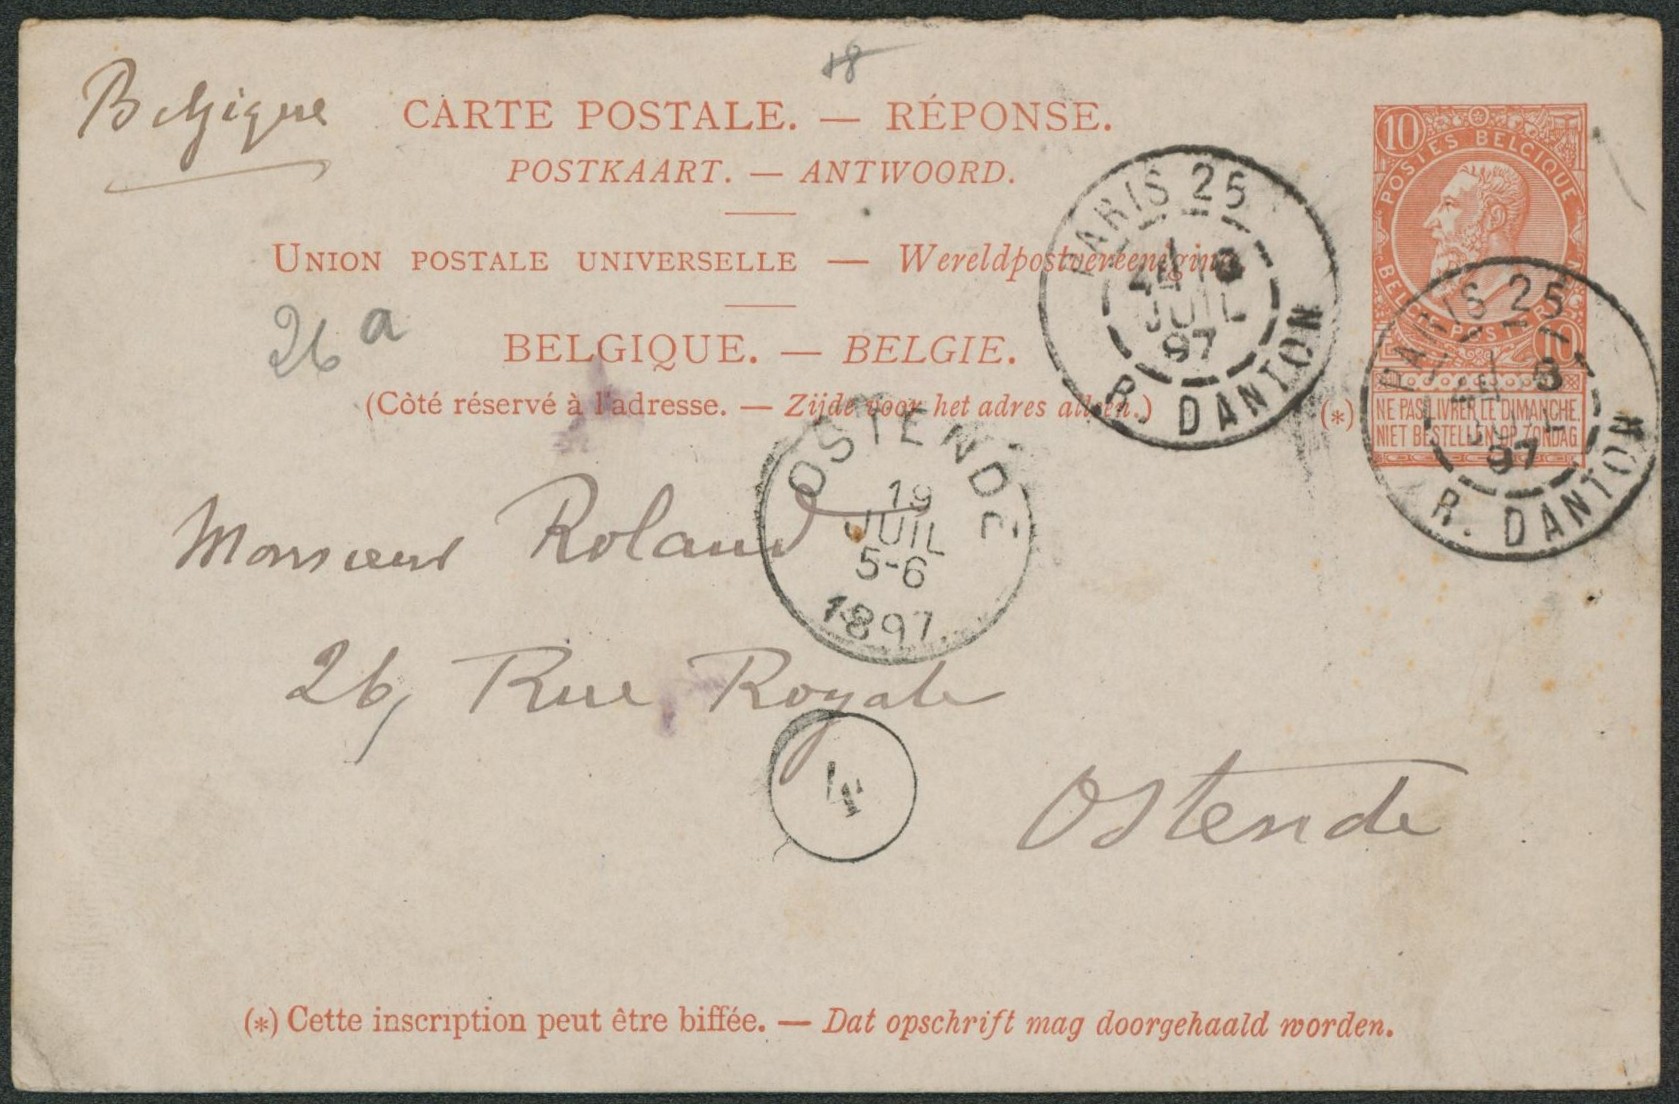 18
Belgique
CARTE POSTALE. — RÉPONSE.
POSTKAART. — ANTWOORD.
UNION POSTALE UNIVERSELLE — Wereldpostvereeniging
26 a
BELGIQUE. — BELGIE.
(Côté réservé à l'adresse. — Zijde voor het adres alleen.)
10
POSTES BELGIQUE
BELGIE POSTERIJEN
10
(*)
NE PAS LIVRER LE DIMANCHE.
NIET BESTELLEN OP ZONDAG
PARIS 25
JUIL
97
R. DANTON
PARIS 25
JUIL
97
R. DANTON
OSTENDE
19
JUIL
5-6
1897
Monsieur Roland
26, Rue Royale
4
Ostende
(*) Cette inscription peut être biffée. — Dat opschrift mag doorgehaald worden.